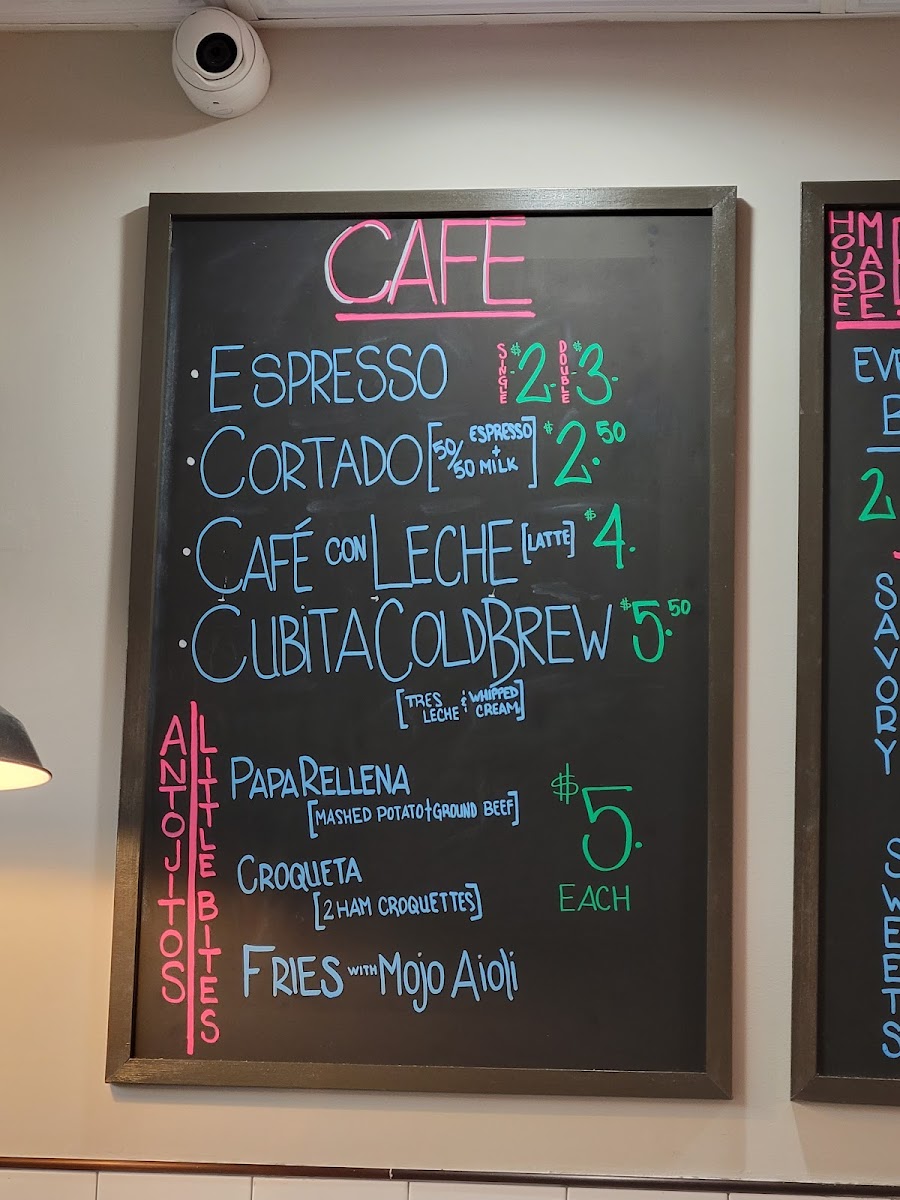 CAFÉ
• ESPRESSO SINGLE - $2. DOUBLE - $3.
• CORTADO [50/50 ESPRESSO + MILK] $2.50
• CAFÉ CON LECHE [LATTE] $4.
• CUBITA COLD BREW $5.50
[TRES LECHE & WHIPPED CREAM]
ANTOJITOS
LITTLE BITES
PAPA RELLENA
[MASHED POTATO + GROUND BEEF]
CROQUETA
[2 HAM CROQUETTES]
FRIES WITH MOJO AIOLI
$5.
EACH
HOUSE
MADE
2
SAVORY
SWEETS